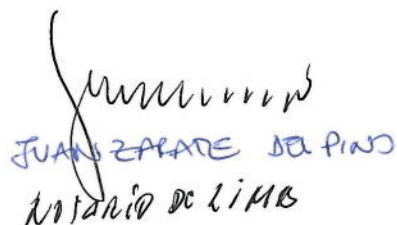 JUAN ZAPATE DEL PINO
NOTARIO DE LIMA